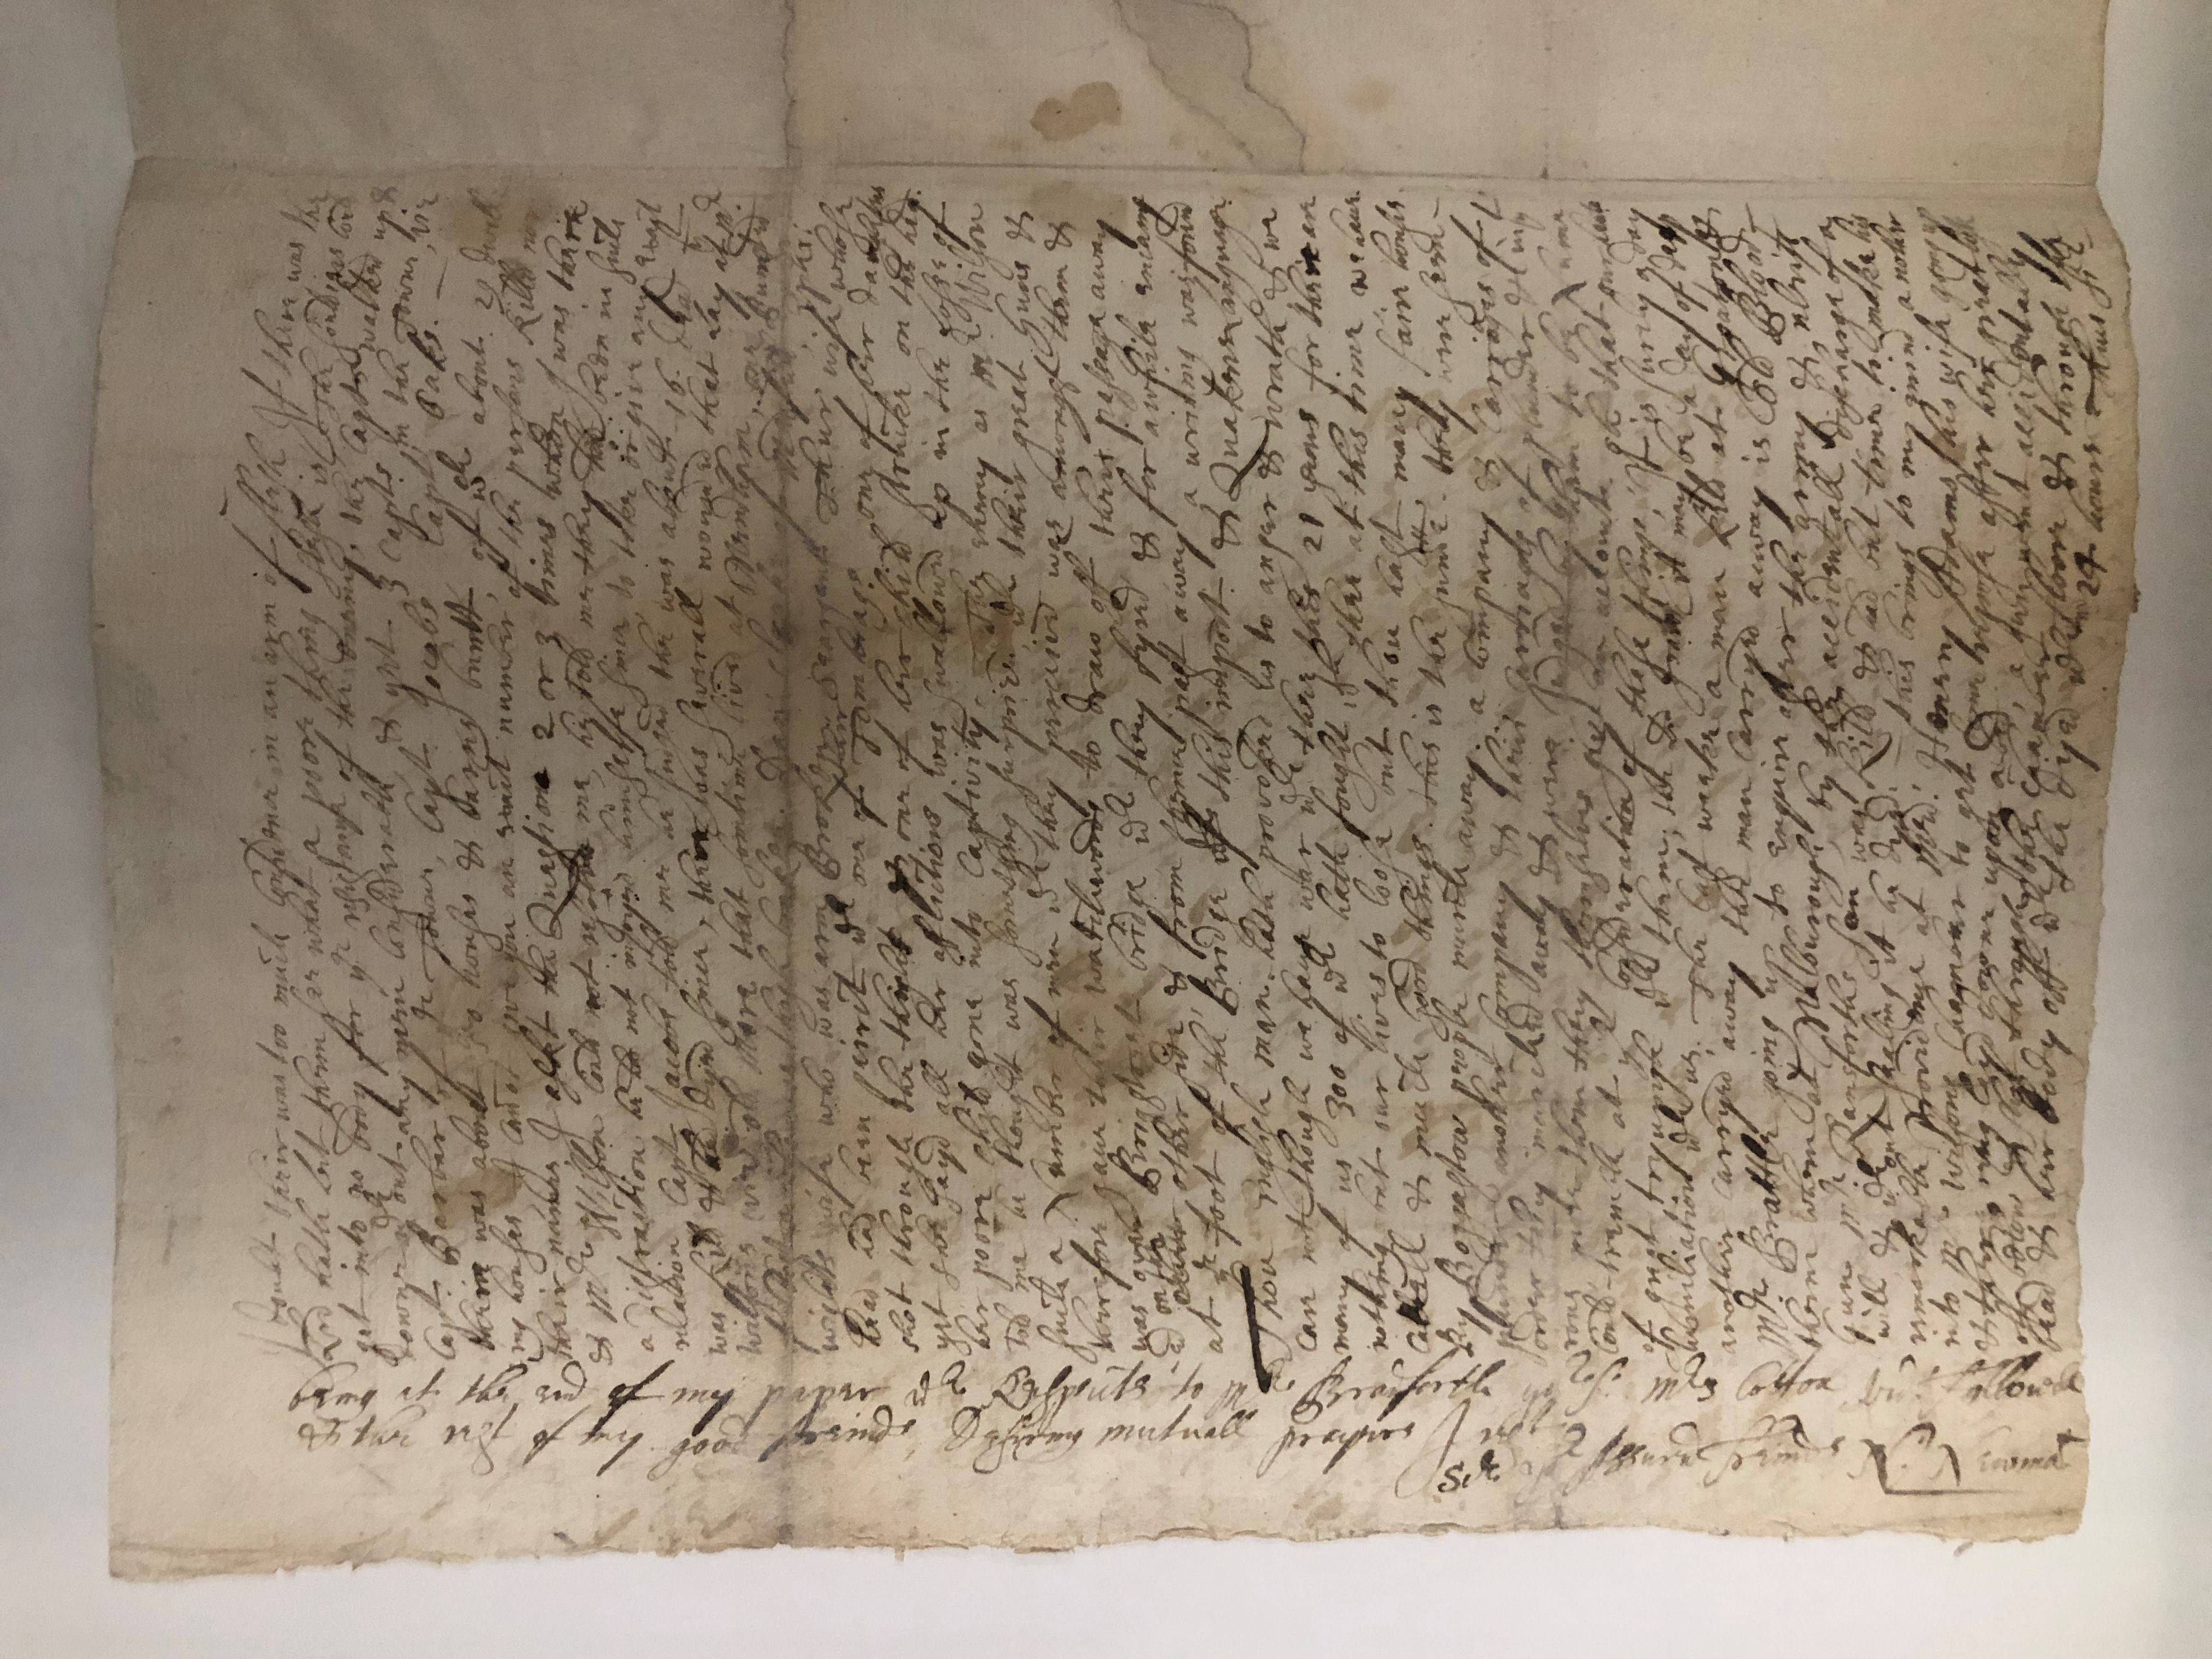 I doubt their was too much Confidence in an arm of flesh If there was the
Lord hath let them see what a poore thing flesh is, The souldiers Could
get into no body for ye resistance of the enemy. the Capts walked up &
downe wthout any men Considerable, & yet 3 Capts in the Towne, viz
Capt. Barbar of ye Towne, Capt. Jacobs Capt. Oaks. —
their was about 50 houses & barns burnt of wch about 29 dwell-
ing houses I cannot give you an exact number of the persons killd nor
their names, I askt the Questione 2 or 3 times when I was there
& Mr Wilson Could not resolve me, he told me they had been in such
a distraction he had not injoyed himselfe since to take or give any exact
relation Capt Jacobs told me he Judged the was about 16. dead yt
was kild & had dyed since, there was severall wounded that Lay at Mr
Wilsons viz old Mare that somtime lived at Mendham, one Bumsted
thigh broken. Dan: Cloake of
wights wife who was arm Broken Seargent Thur wife whose
head had been peirct wth one of their Tomheags. one of her daughters
shot through the thighs & one of her child strucke on the hed.
yet she sayd all her afflictions was swallowed up in the Losse of
her poore child gone into Captivity. The enemy as Mr Wilson
Told me he thought was something surprized wth their great Guns &
such a Number of men wch they perceived was amongst them &
therefore gave their watchwords to draw off their passage away
was over Brigstreet bridge wch they fyred & for awhile encamp
ed on the other side, & from thence past away a writing was found
at ye foot of the Bridge of this import & Quakers Language.
Thou English man hath provoked us to anger & wrath & we
care not though we have war wth thee this 21 years for there are
many of us 300 of wch hath fought wth thee at this time we have
nothing but our lives to loose but thou hast many fair houses
cattell & much Good things. this is the summe. they were seen
By Boggastow people march away. a Company & Carriages of
plunder another Company & their Carriages of plunder & in
order they marched away & were Judged by them to be Nume
rous more then they themselves give an account. oh that our hearts
Could tremble at ye Consideration of these things, It is surely a day
of great tryumph wth them; the Ld grant it may be a day of deep
humiliation wth us. The last weeke a man kild at Groaton &
another Carryed away the man Carryed away is old Blood
Mr Brattle going up to enquire after the army & reliefe
them when at Malburough, by the accidentall discharge of a
Gun Mr Ransforths son was killd & had but time to make his
will & wthout sealing it he dyed. — this brings to my mind another
remarkable Providence at Med: Henery Adams his wife going up
into Mr Wilsons Chamber to get some repose after her great loss
& there being layd downe upon a bed, a gun went accidentally
off below & shot through the Chamber floore & through the
bead & her body off wch she dyed wthin 24 hours Thus Sr
being at the end of my paper wth Respects to Mr Bradforth yr selfe Mrs Cotton
& the rest of my good freinds, Desiring mutuall prayers